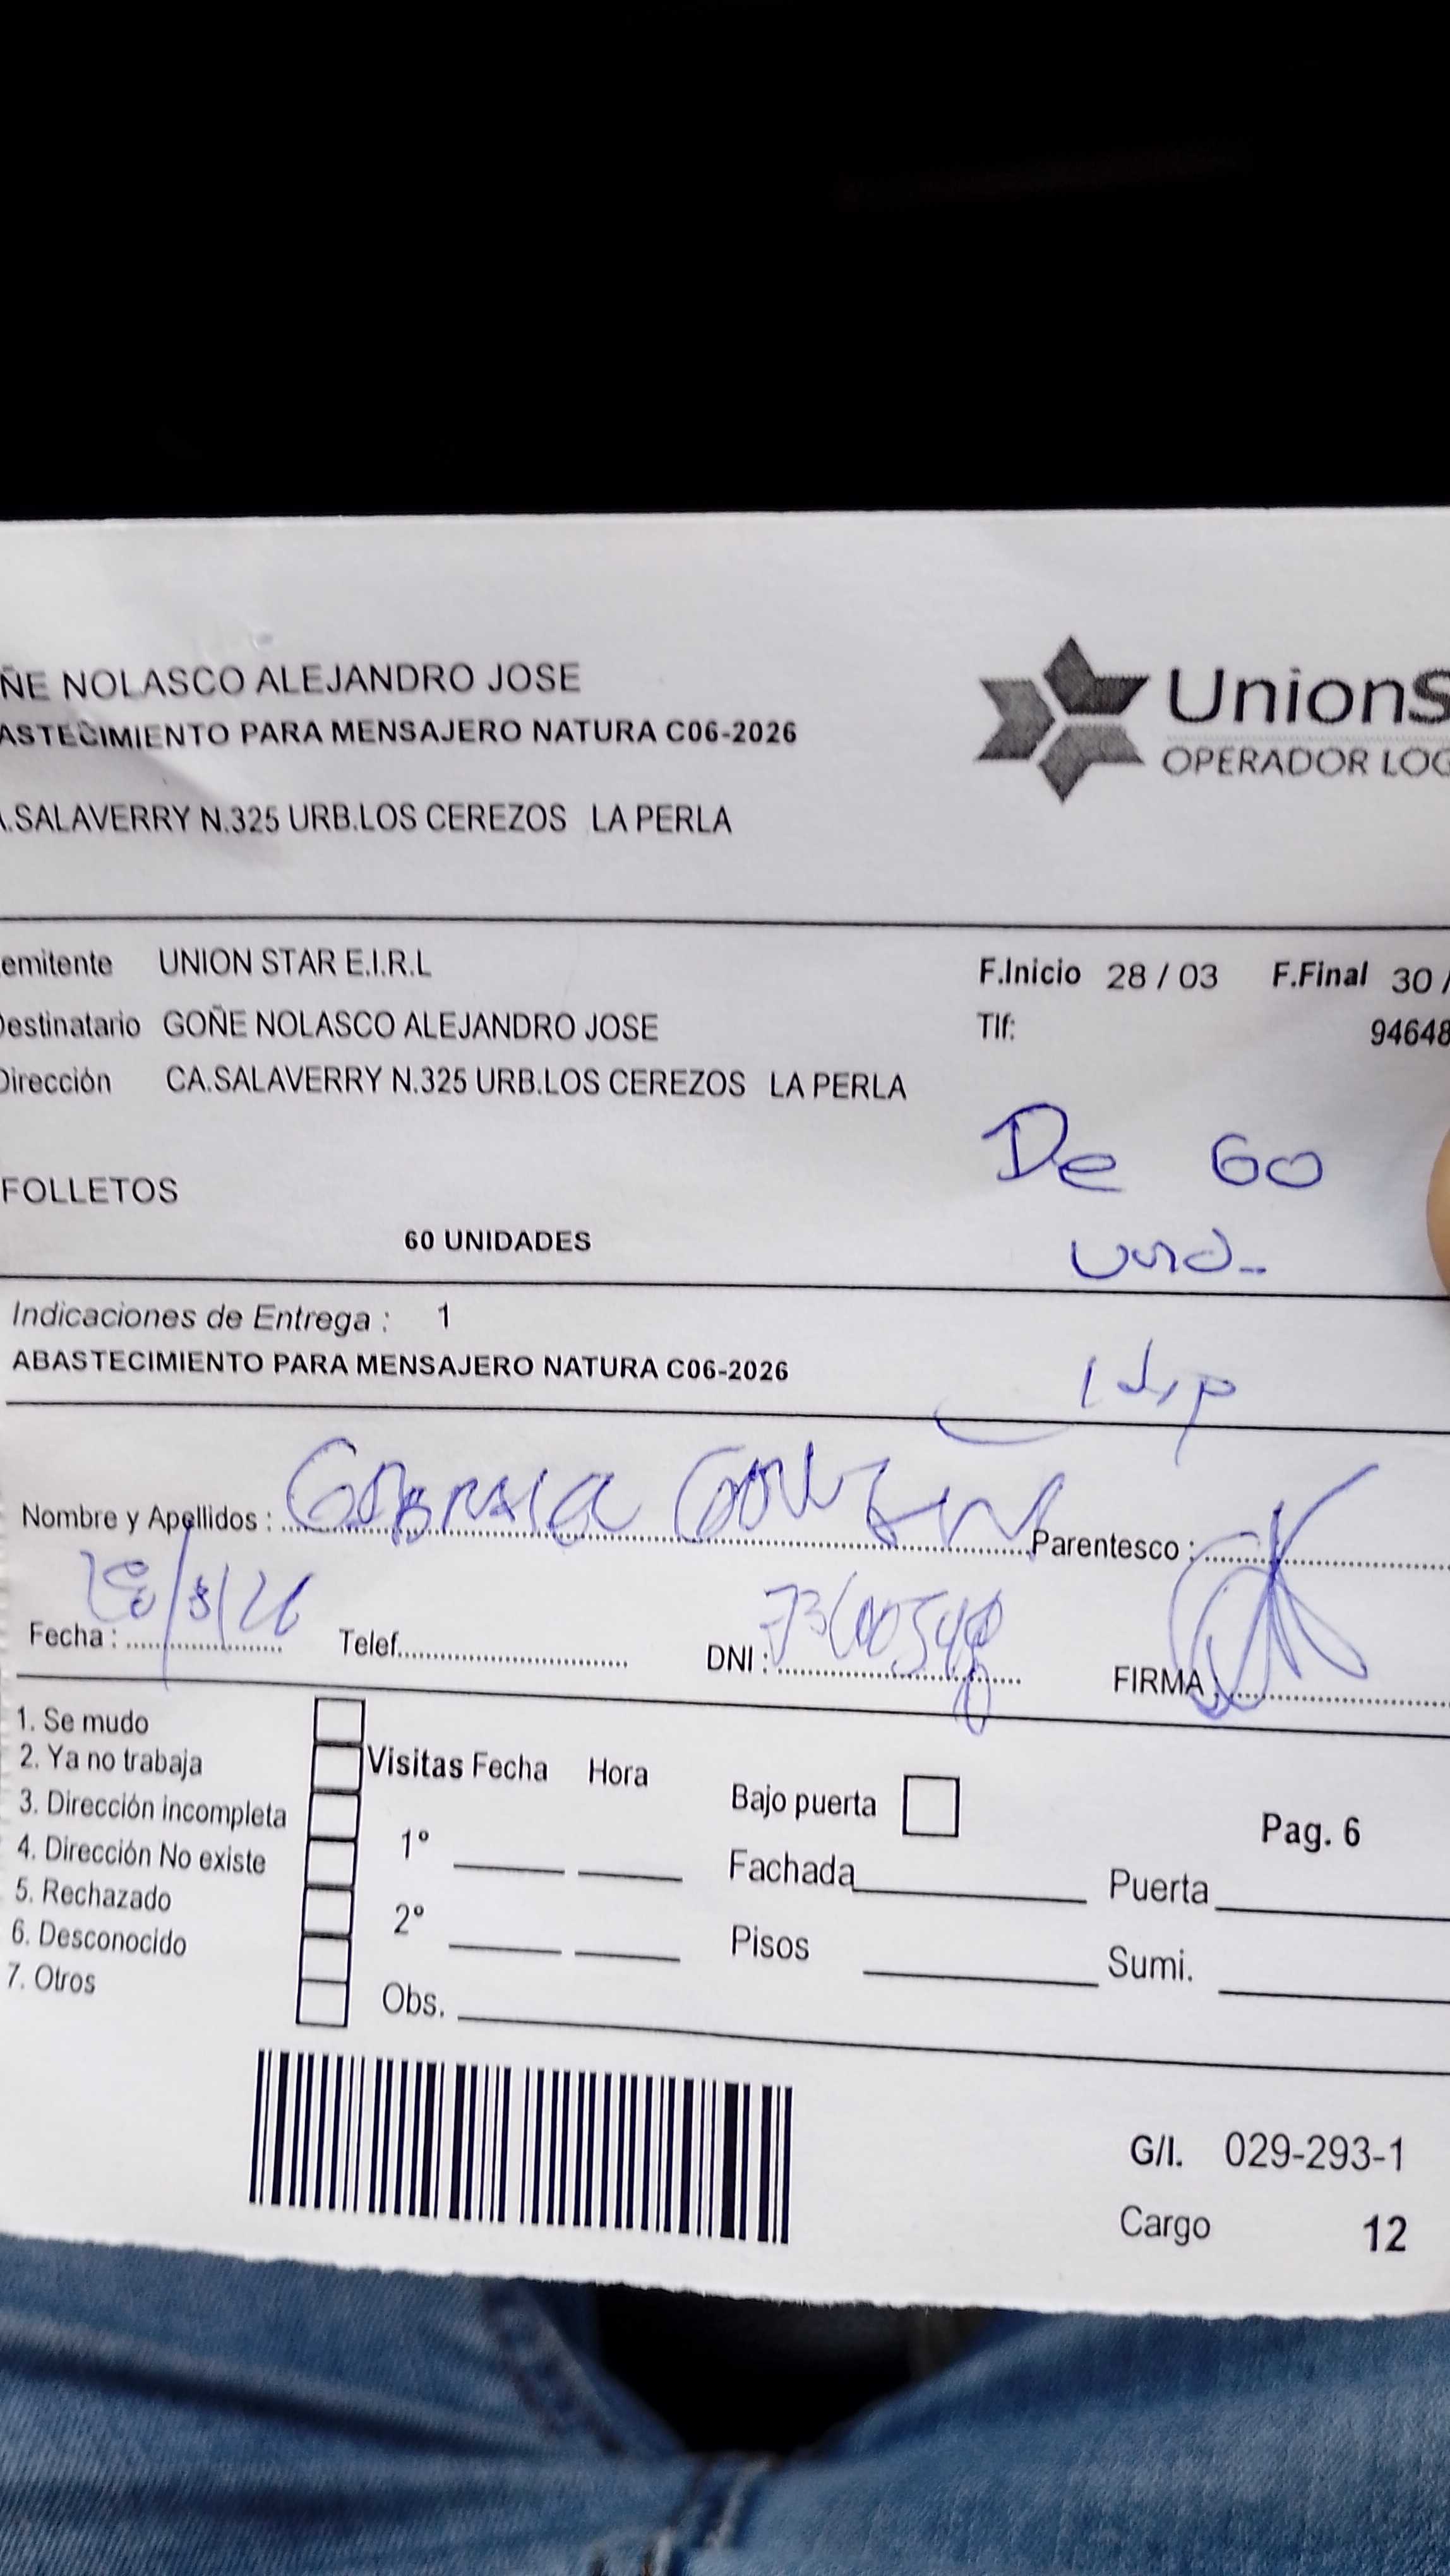 ÑE NOLASCO ALEJANDRO JOSE
ASTECIMIENTO PARA MENSAJERO NATURA C06-2026
.SALAVERRY N.325 URB.LOS CEREZOS LA PERLA
UnionS
OPERADOR LOG
emitente UNION STAR E.I.R.L
F.Inicio 28 / 03 F.Final 30 /
Destinatario GOÑE NOLASCO ALEJANDRO JOSE
Tlf: 94648
Dirección CA.SALAVERRY N.325 URB.LOS CEREZOS LA PERLA
De 60
FOLLETOS
60 UNIDADES
und.
Indicaciones de Entrega : 1
ABASTECIMIENTO PARA MENSAJERO NATURA C06-2026
Nombre y Apellidos : Parentesco :
Fecha : Telef. DNI : FIRMA :
1. Se mudo
2. Ya no trabaja
3. Dirección incompleta
4. Dirección No existe
5. Rechazado
6. Desconocido
7. Otros
Visitas Fecha Hora
1º
2º
Obs.
Bajo puerta
Pag. 6
Fachada Puerta
Pisos Sumi.
G/I. 029-293-1
Cargo 12